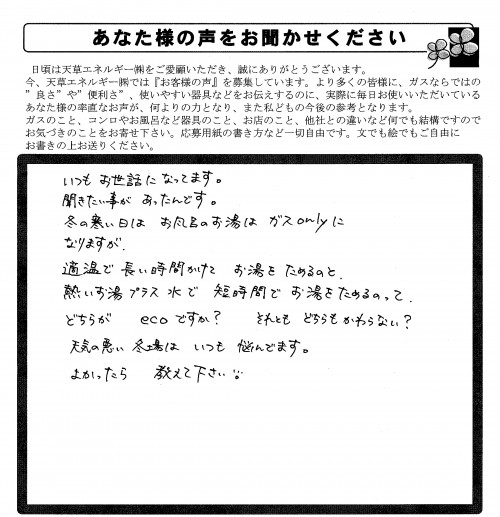 あなた様の声をお聞かせください
日頃は天草エネルギー㈱をご愛顧いただき、誠にありがとうございます。
今、天草エネルギー㈱では『お客様の声』を募集しています。より多くの皆様に、ガスならではの
”良さ”や”便利さ”、使いやすい器具などをお伝えするのに、実際に毎日お使いいただいている
あなた様の率直なお声が、何よりの力となり、また私どもの今後の参考となります。
ガスのこと、コンロやお風呂など器具のこと、お店のこと、他社との違いなど何でも結構ですので
お気づきのことをお寄せ下さい。応募用紙の書き方など一切自由です。文でも絵でもご自由に
お書きの上お送りください。
いつも お世話になってます。
聞きたい事が あったんです。
冬の寒い日は お風呂のお湯は ガスonlyに
なりますが、
適温で 長い時間かけて お湯を ためるのと、
熱いお湯プラス 水で 短時間で お湯をためるのって、
どちらが ecoですか? それとも どちらもかわらない?
天気の悪い 冬場は いつも 悩んでます。
よかったら 教えて下さい